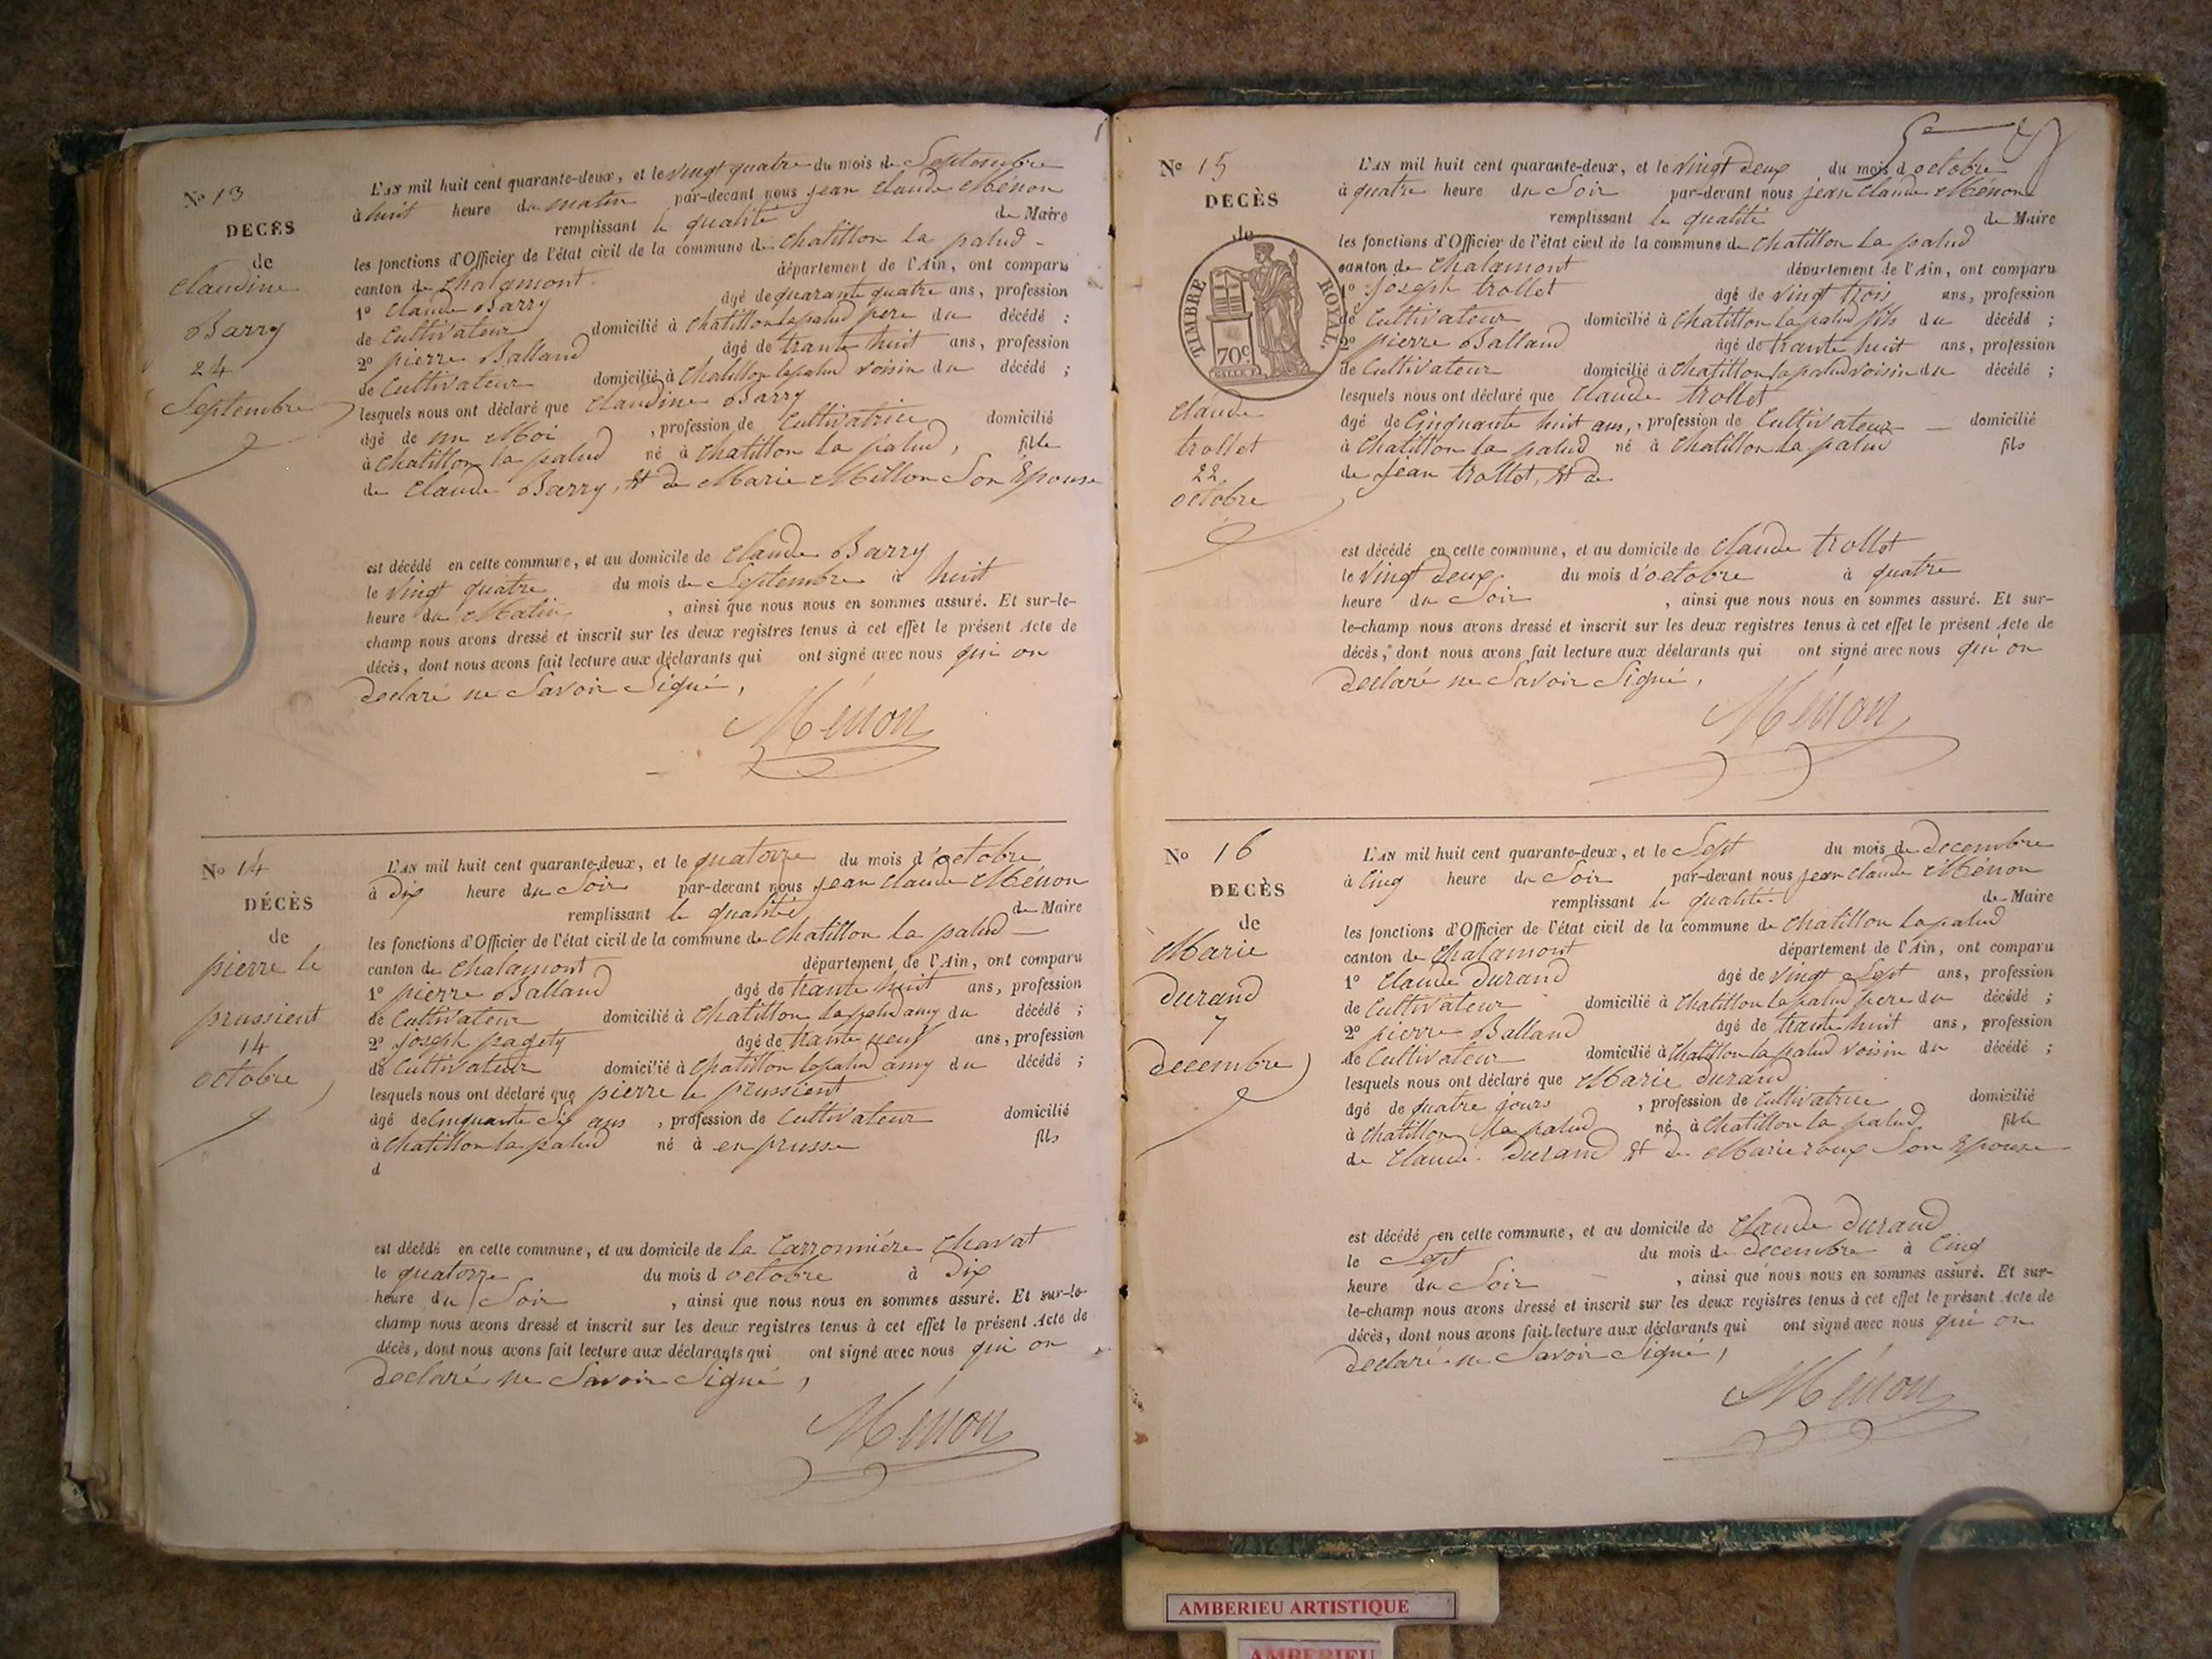 No 13
DECÈS
de
Claudine
Barry
24
Septembre
L'AN mil huit cent quarante-deux, et le vingt quatre du mois de Septembre
à huit heure du matin par-devant nous jean Claude Ménon
remplissant le qualité de Maire
les fonctions d'Officier de l'état civil de la commune de Chatillon la palud
canton de Chalamont département de l'Ain, ont comparu
1º Claude Barry âgé de quarante quatre ans, profession
de Cultivateur domicilié à Chatillon la palud pere du décédé ;
2º pierre Balland âgé de trante huit ans, profession
de Cultivateur domicilié à Chatillon la palud voisin du décédé ;
lesquels nous ont déclaré que Claudine Barry
âgé de un Moi , profession de Cultivatrice domicilié
à Chatillon la palud né à Chatillon la palud, fille
de Claude Barry, Et de Marie Millon Son Epouse
est décédé en cette commune, et au domicile de Claude Barry
le vingt quatre du mois de Septembre à huit
heure du Matin , ainsi que nous nous en sommes assuré. Et sur-le-
champ nous avons dressé et inscrit sur les deux registres tenus à cet effet le présent Acte de
décès, dont nous avons fait lecture aux déclarants qui ont signé avec nous qui on
declaré ne Savoir Signé,
Ménon
No 14
DÉCÈS
de
pierre le
prussient
14
octobre
L'AN mil huit cent quarante-deux, et le quatorze du mois d'octobre
à Dix heure du Soir par-devant nous jean Claude Ménon
remplissant le qualité de Maire
les fonctions d'Officier de l'état civil de la commune de Chatillon la palud
canton de Chalamont département de l'Ain, ont comparu
1º pierre Balland âgé de trante huit ans, profession
de Cultivateur domicilié à Chatillon la palud amy du décédé ;
2º joseph pagety âgé de trante neuf ans, profession
de Cultivateur domicilié à Chatillon la palud amy du décédé ;
lesquels nous ont déclaré que pierre le prussient
âgé de Cinquante Six ans , profession de Cultivateur domicilié
à Chatillon la palud né à en prusse fils
d
est décédé en cette commune, et au domicile de la Carronniére Chavat
le quatorze du mois d octobre à Dix
heure du Soir , ainsi que nous nous en sommes assuré. Et sur-le-
champ nous avons dressé et inscrit sur les deux registres tenus à cet effet le présent Acte de
décès, dont nous avons fait lecture aux déclarants qui ont signé avec nous qui on
declaré ne Savoir Signé,
Ménon
5e
No 15
DECÈS
de
TIMBRE ROYAL.
70c
Claude
trollet
22
octobre
L'AN mil huit cent quarante-deux, et le vingt Deux du mois d octobre
à quatre heure du Soir par-devant nous jean Claude Ménon
remplissant le qualité de Maire
les fonctions d'Officier de l'état civil de la commune de Chatillon la palud
canton de Chalamont département de l'Ain, ont comparu
1º joseph trollet âgé de vingt trois ans, profession
de Cultivateur domicilié à Chatillon la palud fils du décédé ;
2º pierre Balland âgé de trante huit ans, profession
de Cultivateur domicilié à Chatillon la palud voisin du décédé ;
lesquels nous ont déclaré que Claude trollet
âgé de Cinquante huit ans, , profession de Cultivateur domicilié
à Chatillon la palud né à Chatillon la palud fils
de Jean trollet, Et de
est décédé en cette commune, et au domicile de Claude trollet
le vingt deux du mois d'octobre à quatre
heure du Soir , ainsi que nous nous en sommes assuré. Et sur-
le-champ nous avons dressé et inscrit sur les deux registres tenus à cet effet le présent Acte de
décès, dont nous avons fait lecture aux déclarants qui ont signé avec nous qui on
Declaré ne Savoir Signé,
Ménon
No 16
DECÈS
de
Marie
durand
7
decembre
L'AN mil huit cent quarante-deux, et le Sept du mois de decembre
à Cinq heure du Soir par-devant nous jean Claude Ménon
remplissant le qualité de Maire
les fonctions d'Officier de l'état civil de la commune de Chatillon la palud
canton de Chalamont département de l'Ain, ont comparu
1º Claude Durand âgé de vingt Sept ans, profession
de Cultivateur domicilié à Chatillon la palud pere du décédé ;
2º pierre Balland âgé de trante huit ans, profession
de Cultivateur domicilié à Chatillon la palud voisin du décédé ;
lesquels nous ont déclaré que Marie durand
âgé de quatre jours , profession de Cultivatrice domicilié
à Chatillon la palud né à Chatillon la palud, fille
de Claude Durand Et de Marie roux Son Epouse
est décédé en cette commune, et au domicile de Claude Durand
le Sept du mois de Decembre à Cinq
heure du Soir , ainsi que nous nous en sommes assuré. Et sur-
le-champ nous avons dressé et inscrit sur les deux registres tenus à cet effet le présent Acte de
décès, dont nous avons fait lecture aux déclarants qui ont signé avec nous qui on
Declaré ne Savoir Signé,
Ménon
AMBERIEU ARTISTIQUE
AMBERIEU